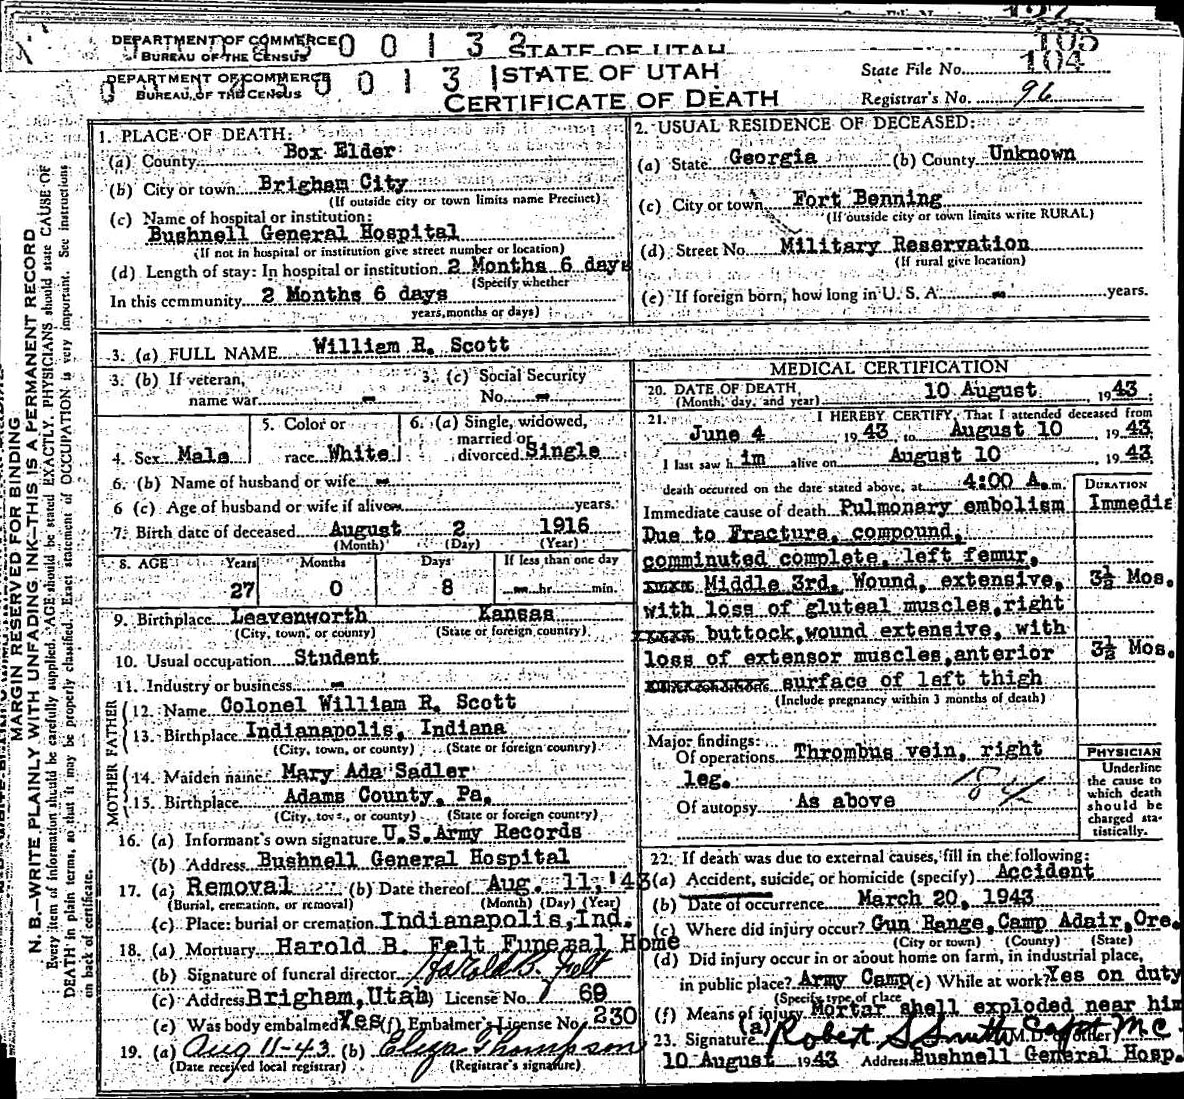 DEPARTMENT OF COMMERCE
BUREAU OF THE CENSUS
0 0 1 3 2
STATE OF UTAH
105
DEPARTMENT OF COMMERCE
BUREAU OF THE CENSUS
0 0 1 3 1
STATE OF UTAH
CERTIFICATE OF DEATH
State File No. 104
Registrar's No. 96
MARGIN RESERVED FOR BINDING
N. B.—WRITE PLAINLY WITH UNFADING INK—THIS IS A PERMANENT RECORD
Every item of information should be carefully supplied. AGE should be stated EXACTLY. PHYSICIANS should state CAUSE OF
DEATH in plain terms, so that it may be properly classified. Exact statement of OCCUPATION is very important. See instructions
on back of certificate.
1. PLACE OF DEATH:
(a) County Box Elder
(b) City or town Brigham City
(If outside city or town limits name Precinct)
(c) Name of hospital or institution:
Bushnell General Hospital
(If not in hospital or institution give street number or location)
(d) Length of stay: In hospital or institution 2 Months 6 days
(Specify whether
In this community 2 Months 6 days
years, months or days)
2. USUAL RESIDENCE OF DECEASED:
(a) State Georgia (b) County Unknown
(c) City or town Fort Benning
(If outside city or town limits write RURAL)
(d) Street No. Military Reservation
(If rural give location)
(e) If foreign born, how long in U. S. A. - years.
3. (a) FULL NAME William R. Scott
3. (b) If veteran, name war -
3. (c) Social Security No. -
4. Sex Male
5. Color or race White
6. (a) Single, widowed, married or divorced Single
6. (b) Name of husband or wife -
6 (c) Age of husband or wife if alive - years.
7. Birth date of deceased August 2 1916
(Month) (Day) (Year)
8. AGE Years Months Days If less than one day
27 0 8 - hr. min.
9. Birthplace Leavenworth Kansas
(City, town, or county) (State or foreign country)
10. Usual occupation Student
11. Industry or business -
FATHER
12. Name Colonel William R. Scott
13. Birthplace Indianapolis, Indiana
(City, town, or county) (State or foreign country)
MOTHER
14. Maiden name Mary Ada Sadler
15. Birthplace Adams County, Pa.
(City, town, or county) (State or foreign country)
16. (a) Informant's own signature U.S.Army Records
(b) Address Bushnell General Hospital
17. (a) Removal (b) Date thereof Aug. 11, '43
(Burial, cremation, or removal) (Month) (Day) (Year)
(c) Place: burial or cremation Indianapolis, Ind.
18. (a) Mortuary Harold B. Felt Funeral Home
(b) Signature of funeral director Harold B. Felt
(c) Address Brigham, Utah License No. 69
(e) Was body embalmed Yes (f) Embalmer's License No. 230
19. (a) Aug 11-43 (b) Eliza Thompson
(Date received local registrar) (Registrar's signature)
MEDICAL CERTIFICATION
20. DATE OF DEATH 10 August 1943
(Month, day, and year)
21. I HEREBY CERTIFY, That I attended deceased from
June 4 1943 to August 10 1943
I last saw him alive on August 10 1943
death occurred on the date stated above, at 4:00 A.m.
DURATION
Immediate cause of death Pulmonary embolism Immedia
Due to Fracture, compound,
comminuted complete, left femur,
Middle 3rd. Wound, extensive, 3½ Mos.
with loss of gluteal muscles, right
buttock, wound extensive, with
loss of extensor muscles, anterior 3½ Mos.
surface of left thigh
(Include pregnancy within 3 months of death)
Major findings:
Of operations Thrombus vein, right
leg.
Of autopsy As above
PHYSICIAN
Underline
the cause to
which death
should be
charged sta-
tistically.
22. If death was due to external causes, fill in the following:
(a) Accident, suicide, or homicide (specify) Accident
(b) Date of occurrence March 20, 1943
(c) Where did injury occur? Gun Range, Camp Adair, Ore.
(City or town) (County) (State)
(d) Did injury occur in or about home on farm, in industrial place,
in public place? Army Camp (e) While at work? Yes on duty
(Specify type of place
(f) Means of injury Mortar shell exploded near him
(a)
23. Signature Robert S Smith Capt M C (M.D. or other)
10 August 1943 Address Bushnell General Hosp.